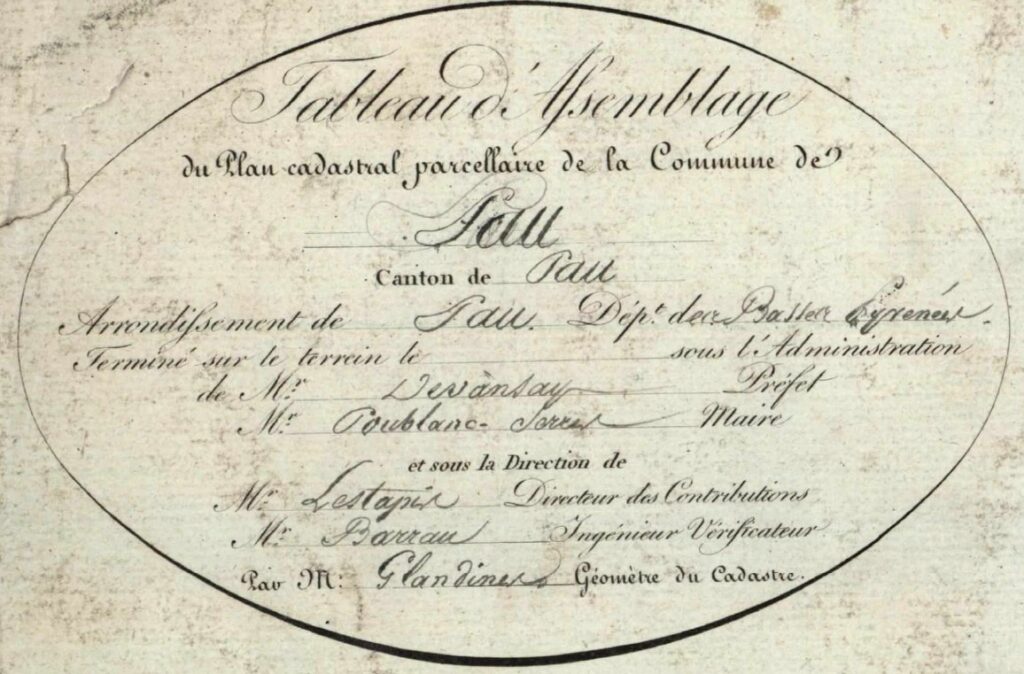 Tableau d'Assemblage
du Plan cadastral parcellaire de la Commune de
Pau
Canton de Pau
Arrondissement de Pau. Dépt. des Basses Pyrénées.
Terminé sur le terrein le sous l'Administration
de Mr. Devansay Préfet
Mr. Poublanc- Serres Maire
et sous la Direction de
Mr. Lestapis Directeur des Contributions
Mr. Barrau Ingénieur Vérificateur
Par M: Glandines Géomètre du Cadastre.